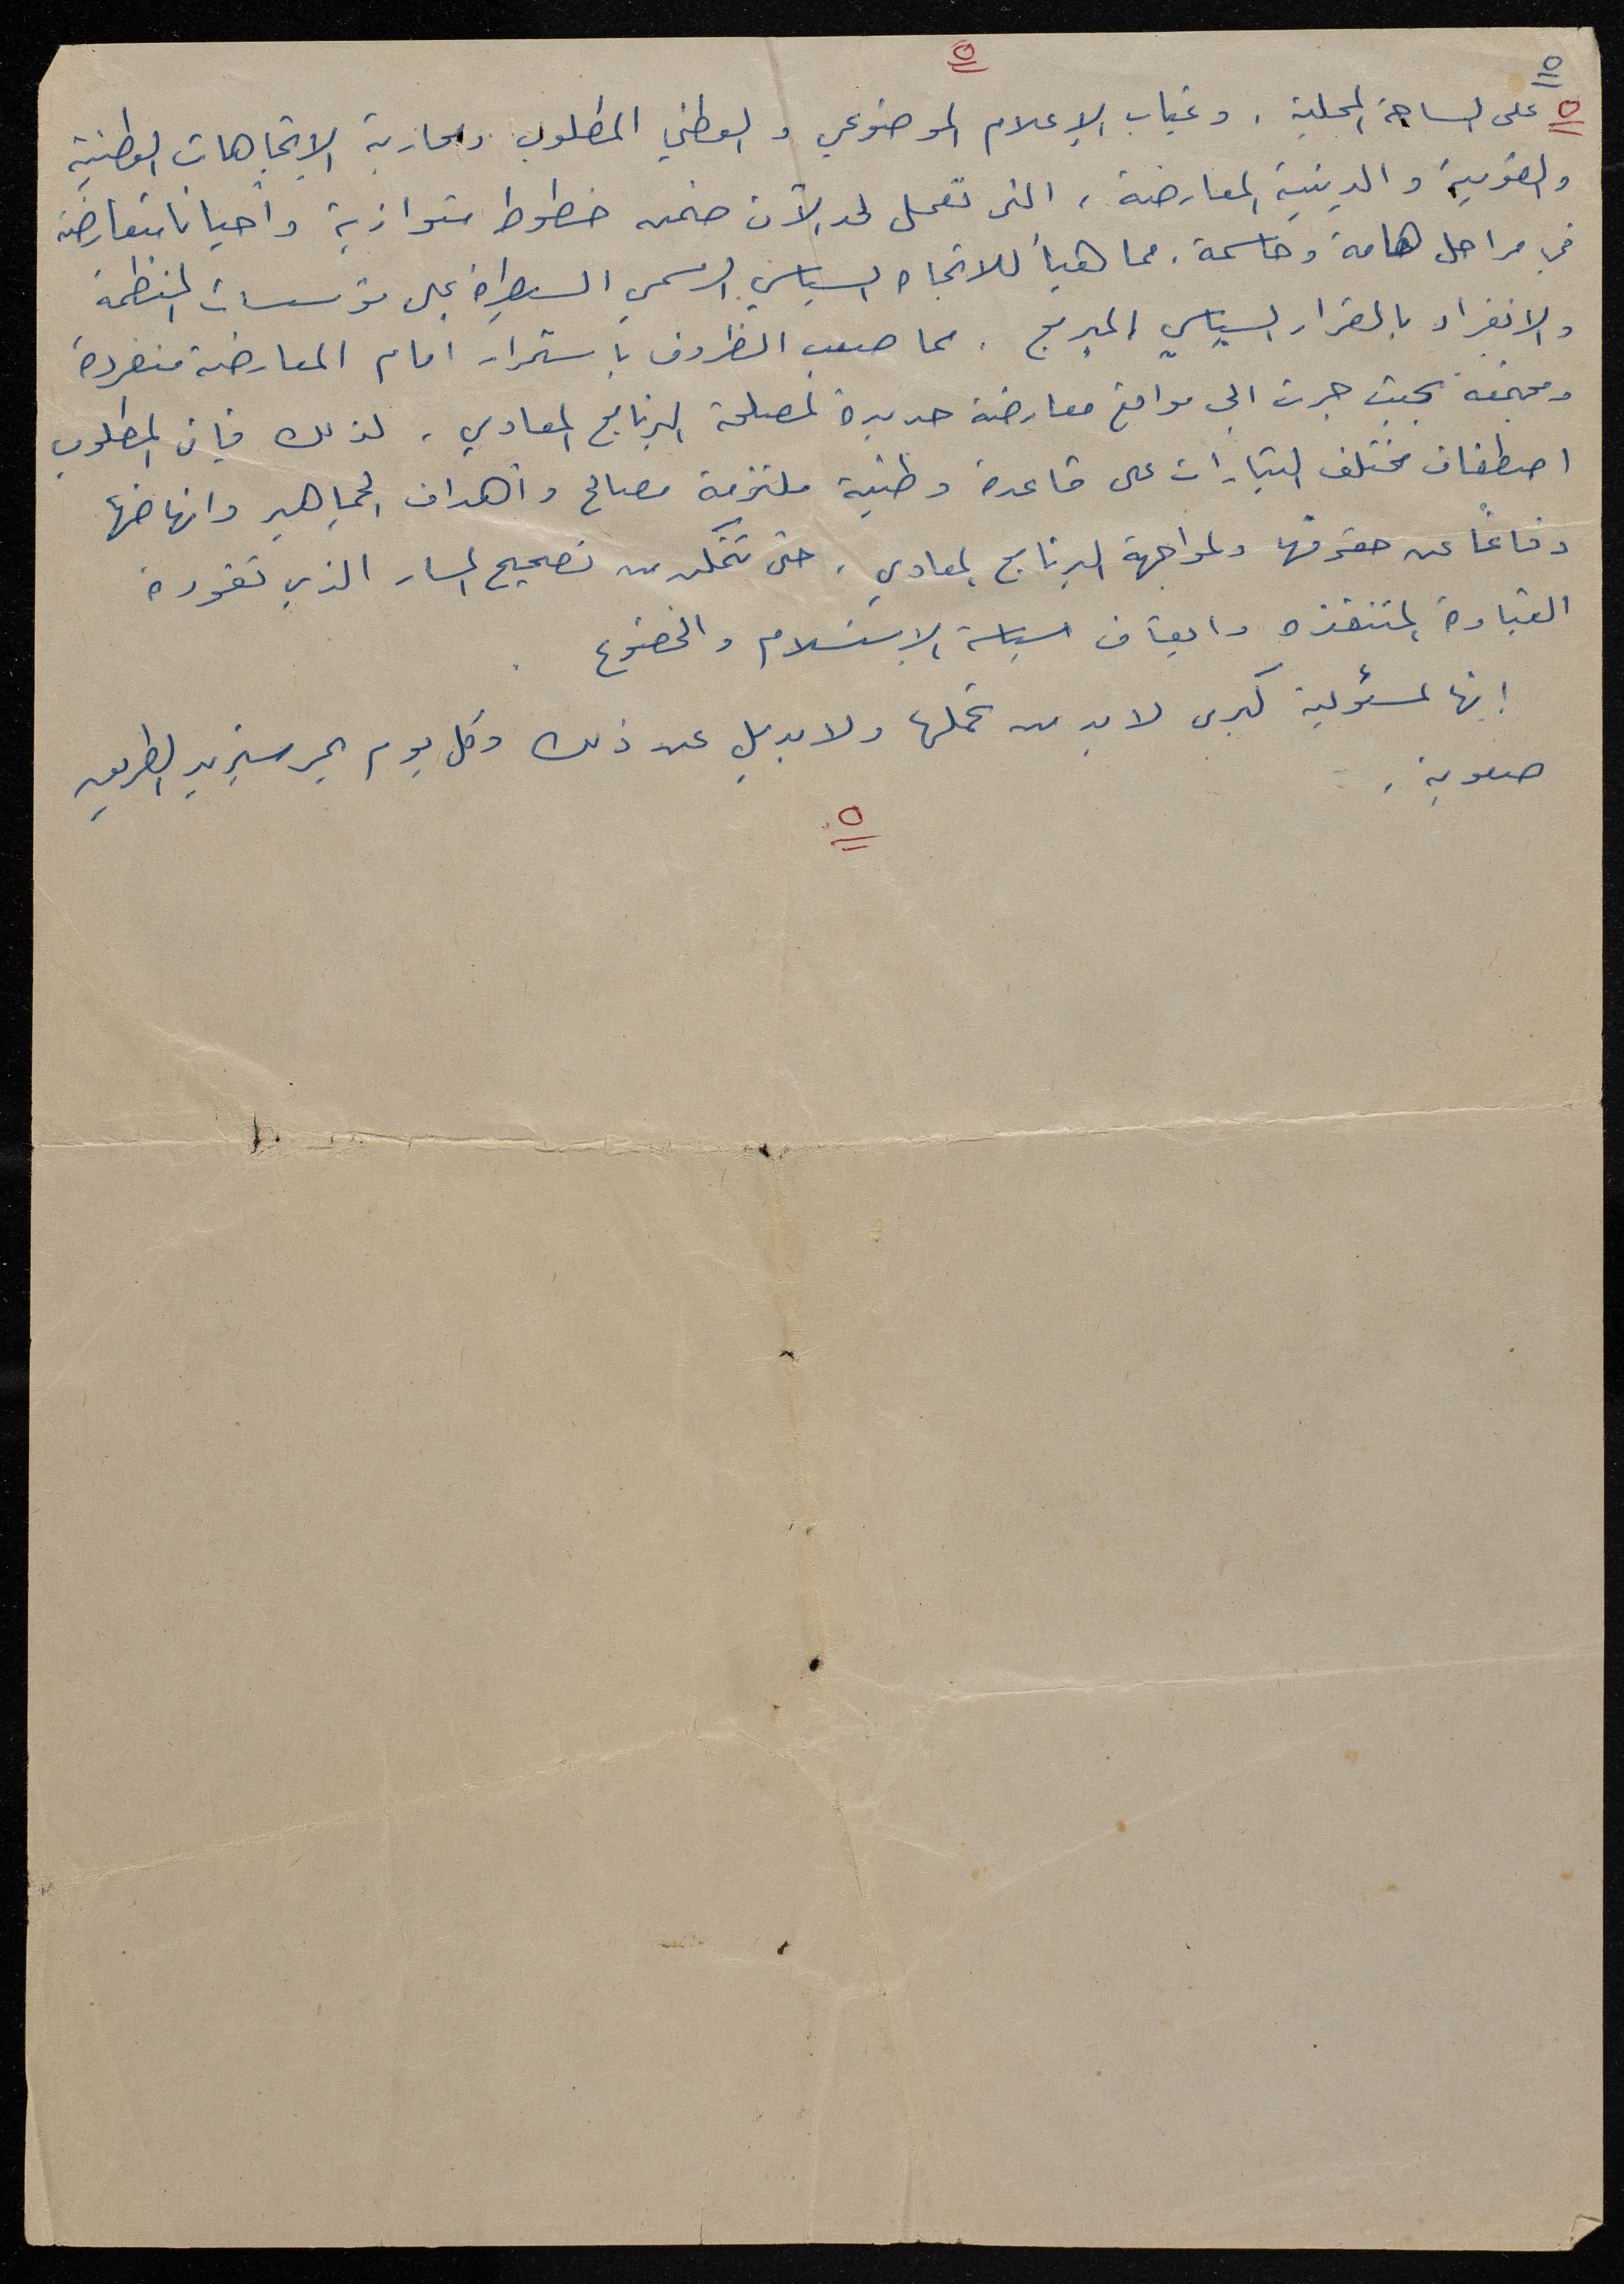 ٥
٥
٥ على الساحة المحلية، وغياب الإعلام الموضوعي والوطني المطلوب ومحاربة الإتجاهات الوطنية
والقومية والدينية المعارضة، التي تعمل لحد الآن ضمن خطوط متوازية وأحيانا متعارضة
في مراحل هامة وحاسمة. مما هيأ للاتجاه السياسي الرسمي السيطرة على مؤسسات المنظمة
والانفراد بالقرار السياسي المبرمج. مما صعب الظروف باستمرار امام المعارضة منفردة
ومجتمعة بحيث جرت الى مواقع معارضة جديدة لمصلحة البرنامج المعادي، لذلك فإن المطلوب
اصطفاف مختلف التيارات على قاعدة وطنية ملتزمة مصالح وأهداف الجماهير وانهاضها
دفاعاً عن حقوقها ولمواجهة البرنامج المعادي، حتى تتمكن من تصحيح المسار الذي تقوده
القيادة المتنفذه وايقاف سياسة الإستسلام والخضوع
إنها لمسئولية كبرى لا بد من تحملها ولا بديل عن ذلك وكل يوم يمر سيزيد الطريق
صعوبة.
٥